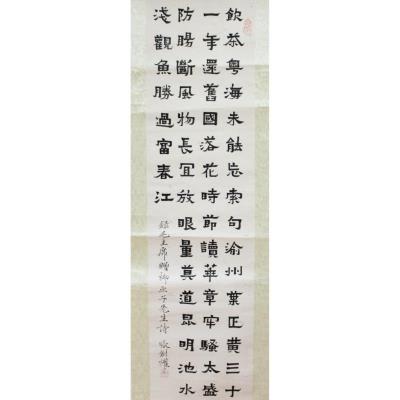 飲茶粤海未能忘索句渝州葉正黃三十
一年還舊國落花時節讀華章牢騷太盛
防腸斷風物長宜放眼量莫道昆明池水
淺觀魚勝過富春江
錄毛主席贈柳亞子先生詩